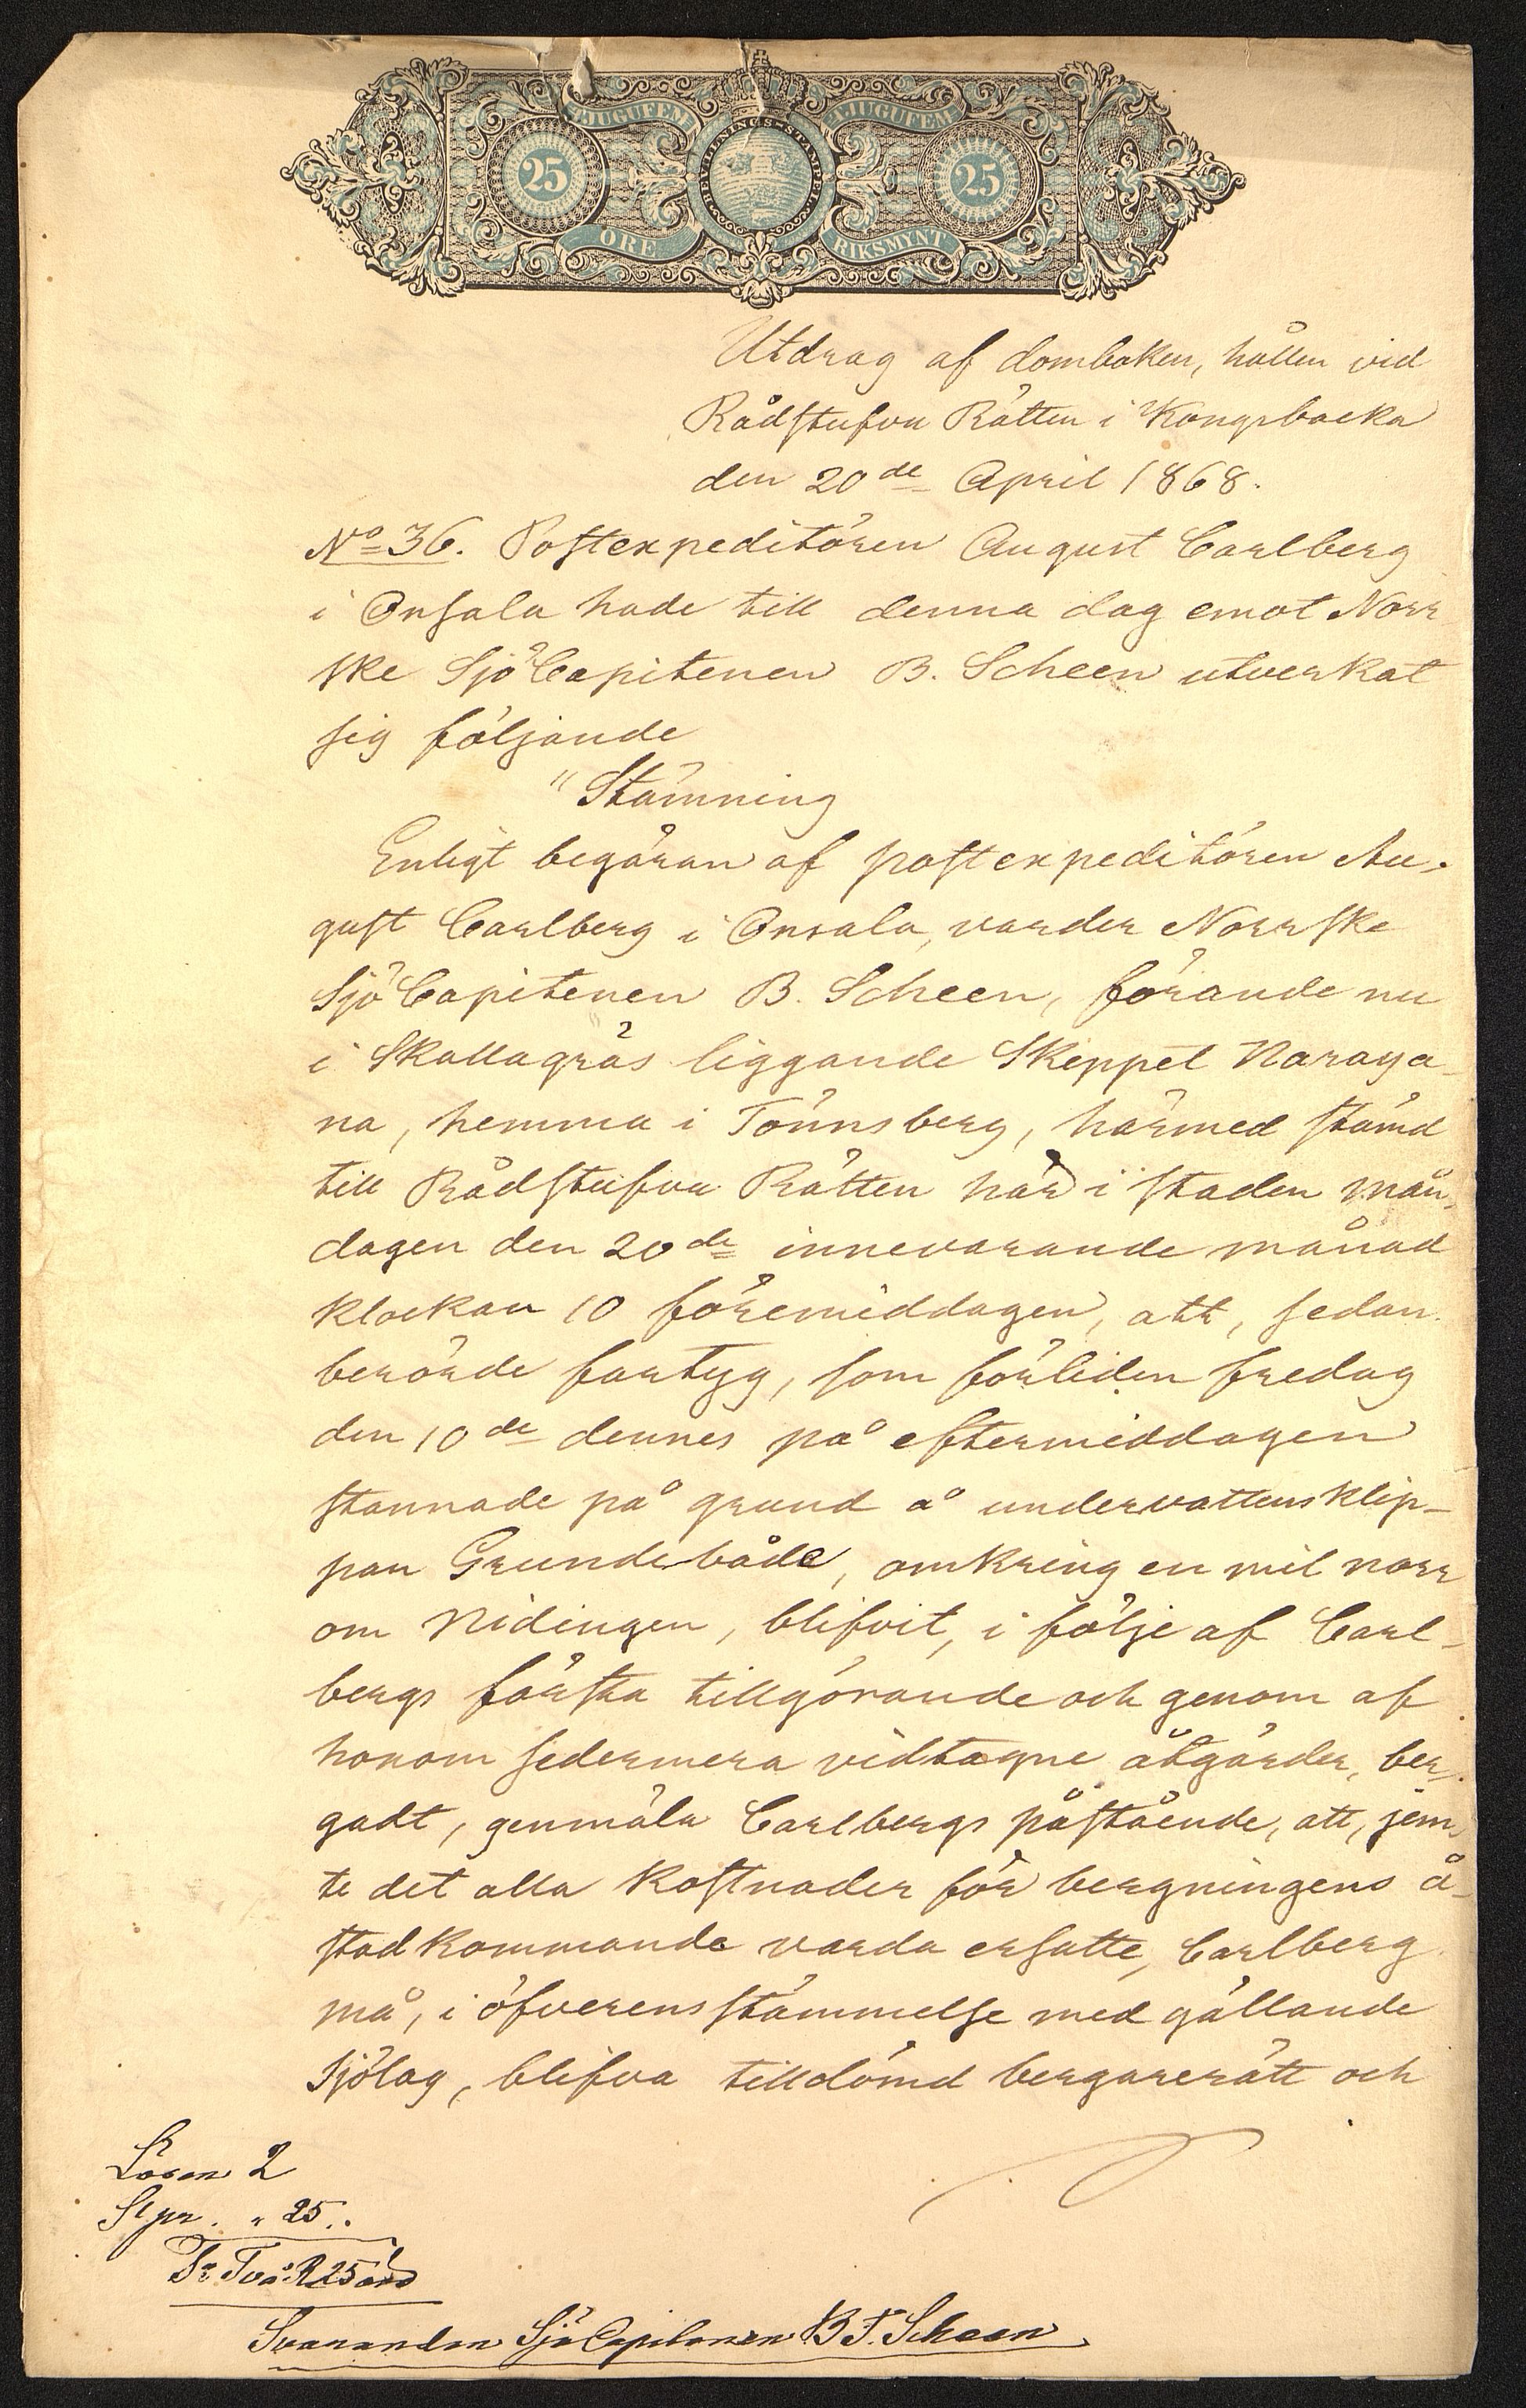 TJUGUFEM TJUGUFEM
BEVILLNINGS-STÄMPEL
25 25
ÖRE RIKSMYNT
Utdrag af domboken, hållen vid
Rådstufvu Rätten i Kongsbacka
den 20de April 1868.
No 36. Postexpeditören August Carlberg
i Onsala hade till denna dag emot Norr
ske SjöCapitenen B. Scheen utverkat
sig följande
"Stämning
Enligt begäran af postexpeditören Au-
gust Carlberg i Onsala, varder Norrske
SjöCapitenen B. Scheen, förande nu
i Skallagräs liggande Skeppet Naraya-
na, hemma i Tönnsberg, härmed stämd
till Rådstufvu Rätten här i staden mån-
dagen den 20de innevarande månad
klockan 10 föremiddagen, att, sedan
berörde fartyg, som förliden fredag
den 10de dennes på eftermiddagen
stannade på grund å undervattensklip-
pan Grundebåde, omkring en mil norr
om Nidingen, blifvit, i följe af Carl-
bergs första tillgörande och genom af
honom sedermera vidtagne åtgärder, ber-
gadt, genmäla Carlbergs påstående, att, jem
te det alla kostnader för bergningens å-
stadkommande varda ersatte, Carlberg
må, i öfverensstämmelse med gällande
Sjölag, blifva tilldömd bergarerätt och
Lösen 2
Stpr. " 25.
Sr Två R 25 öre
Svaranden SjöCapitenen B F. Scheen